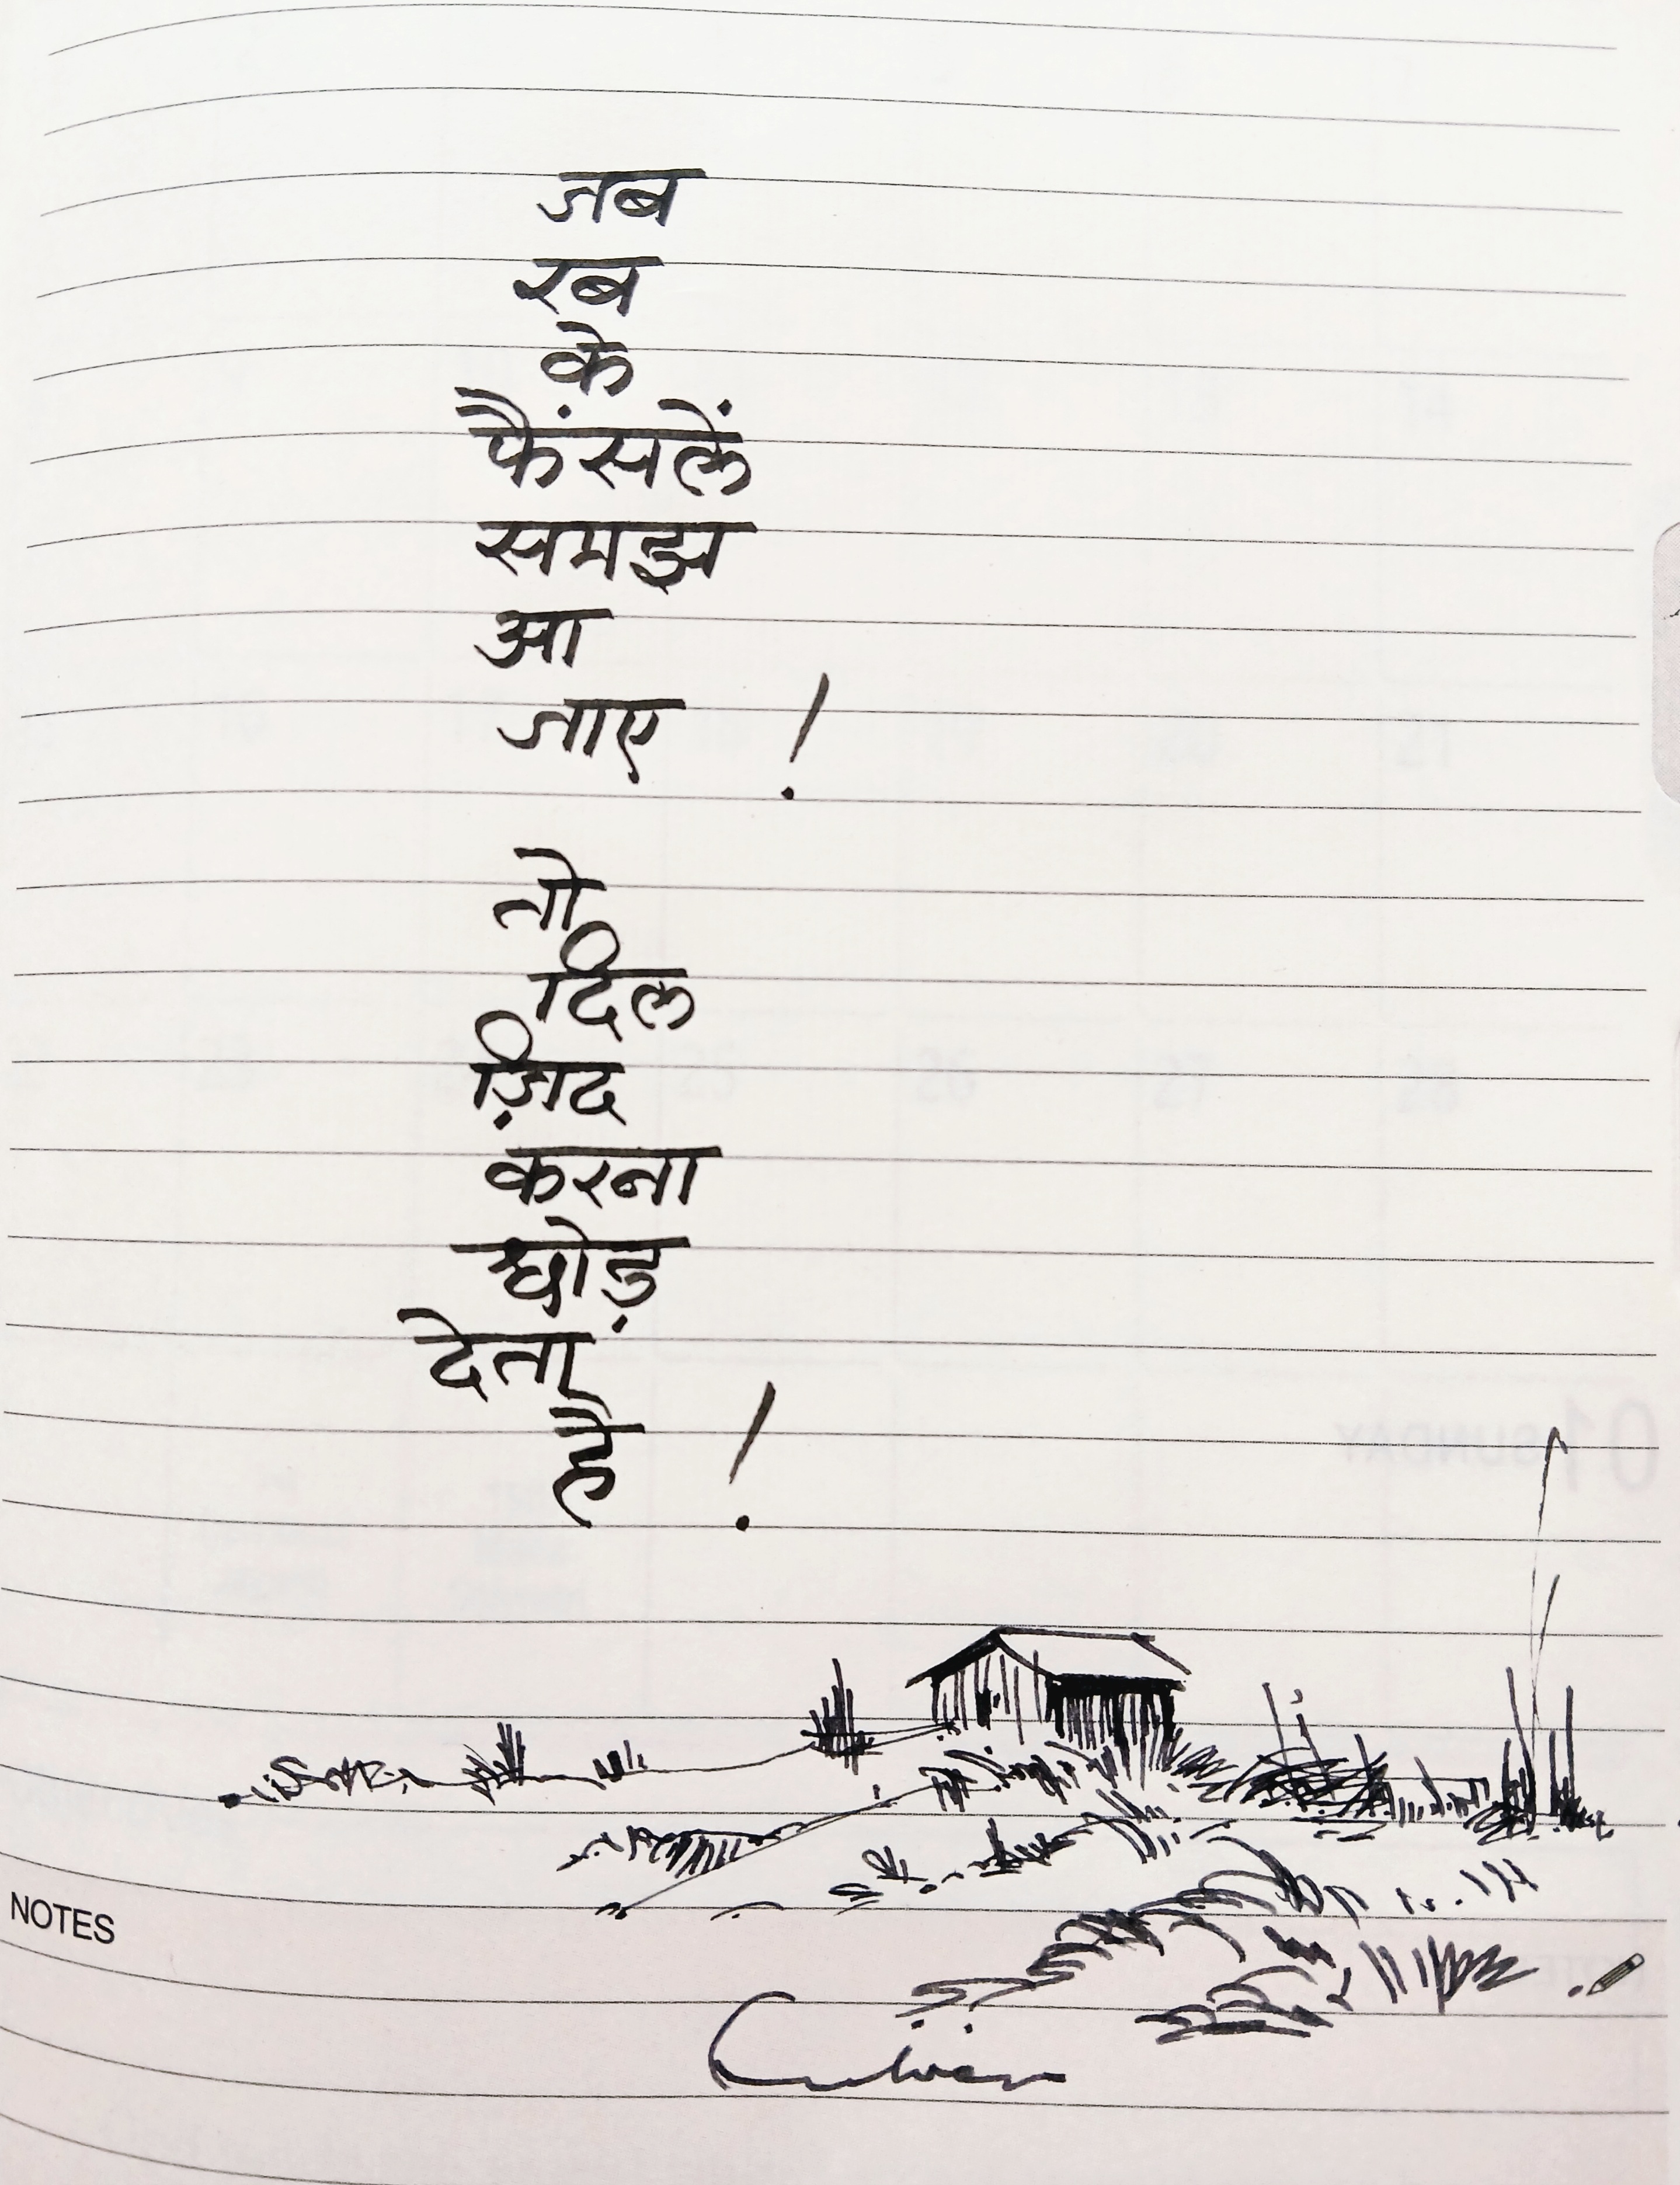 जब
रब
के
फैंसलें
समझ
आ
जाए !
तो
दिल
ज़िद
करना
छोड़
देता
है !
NOTES